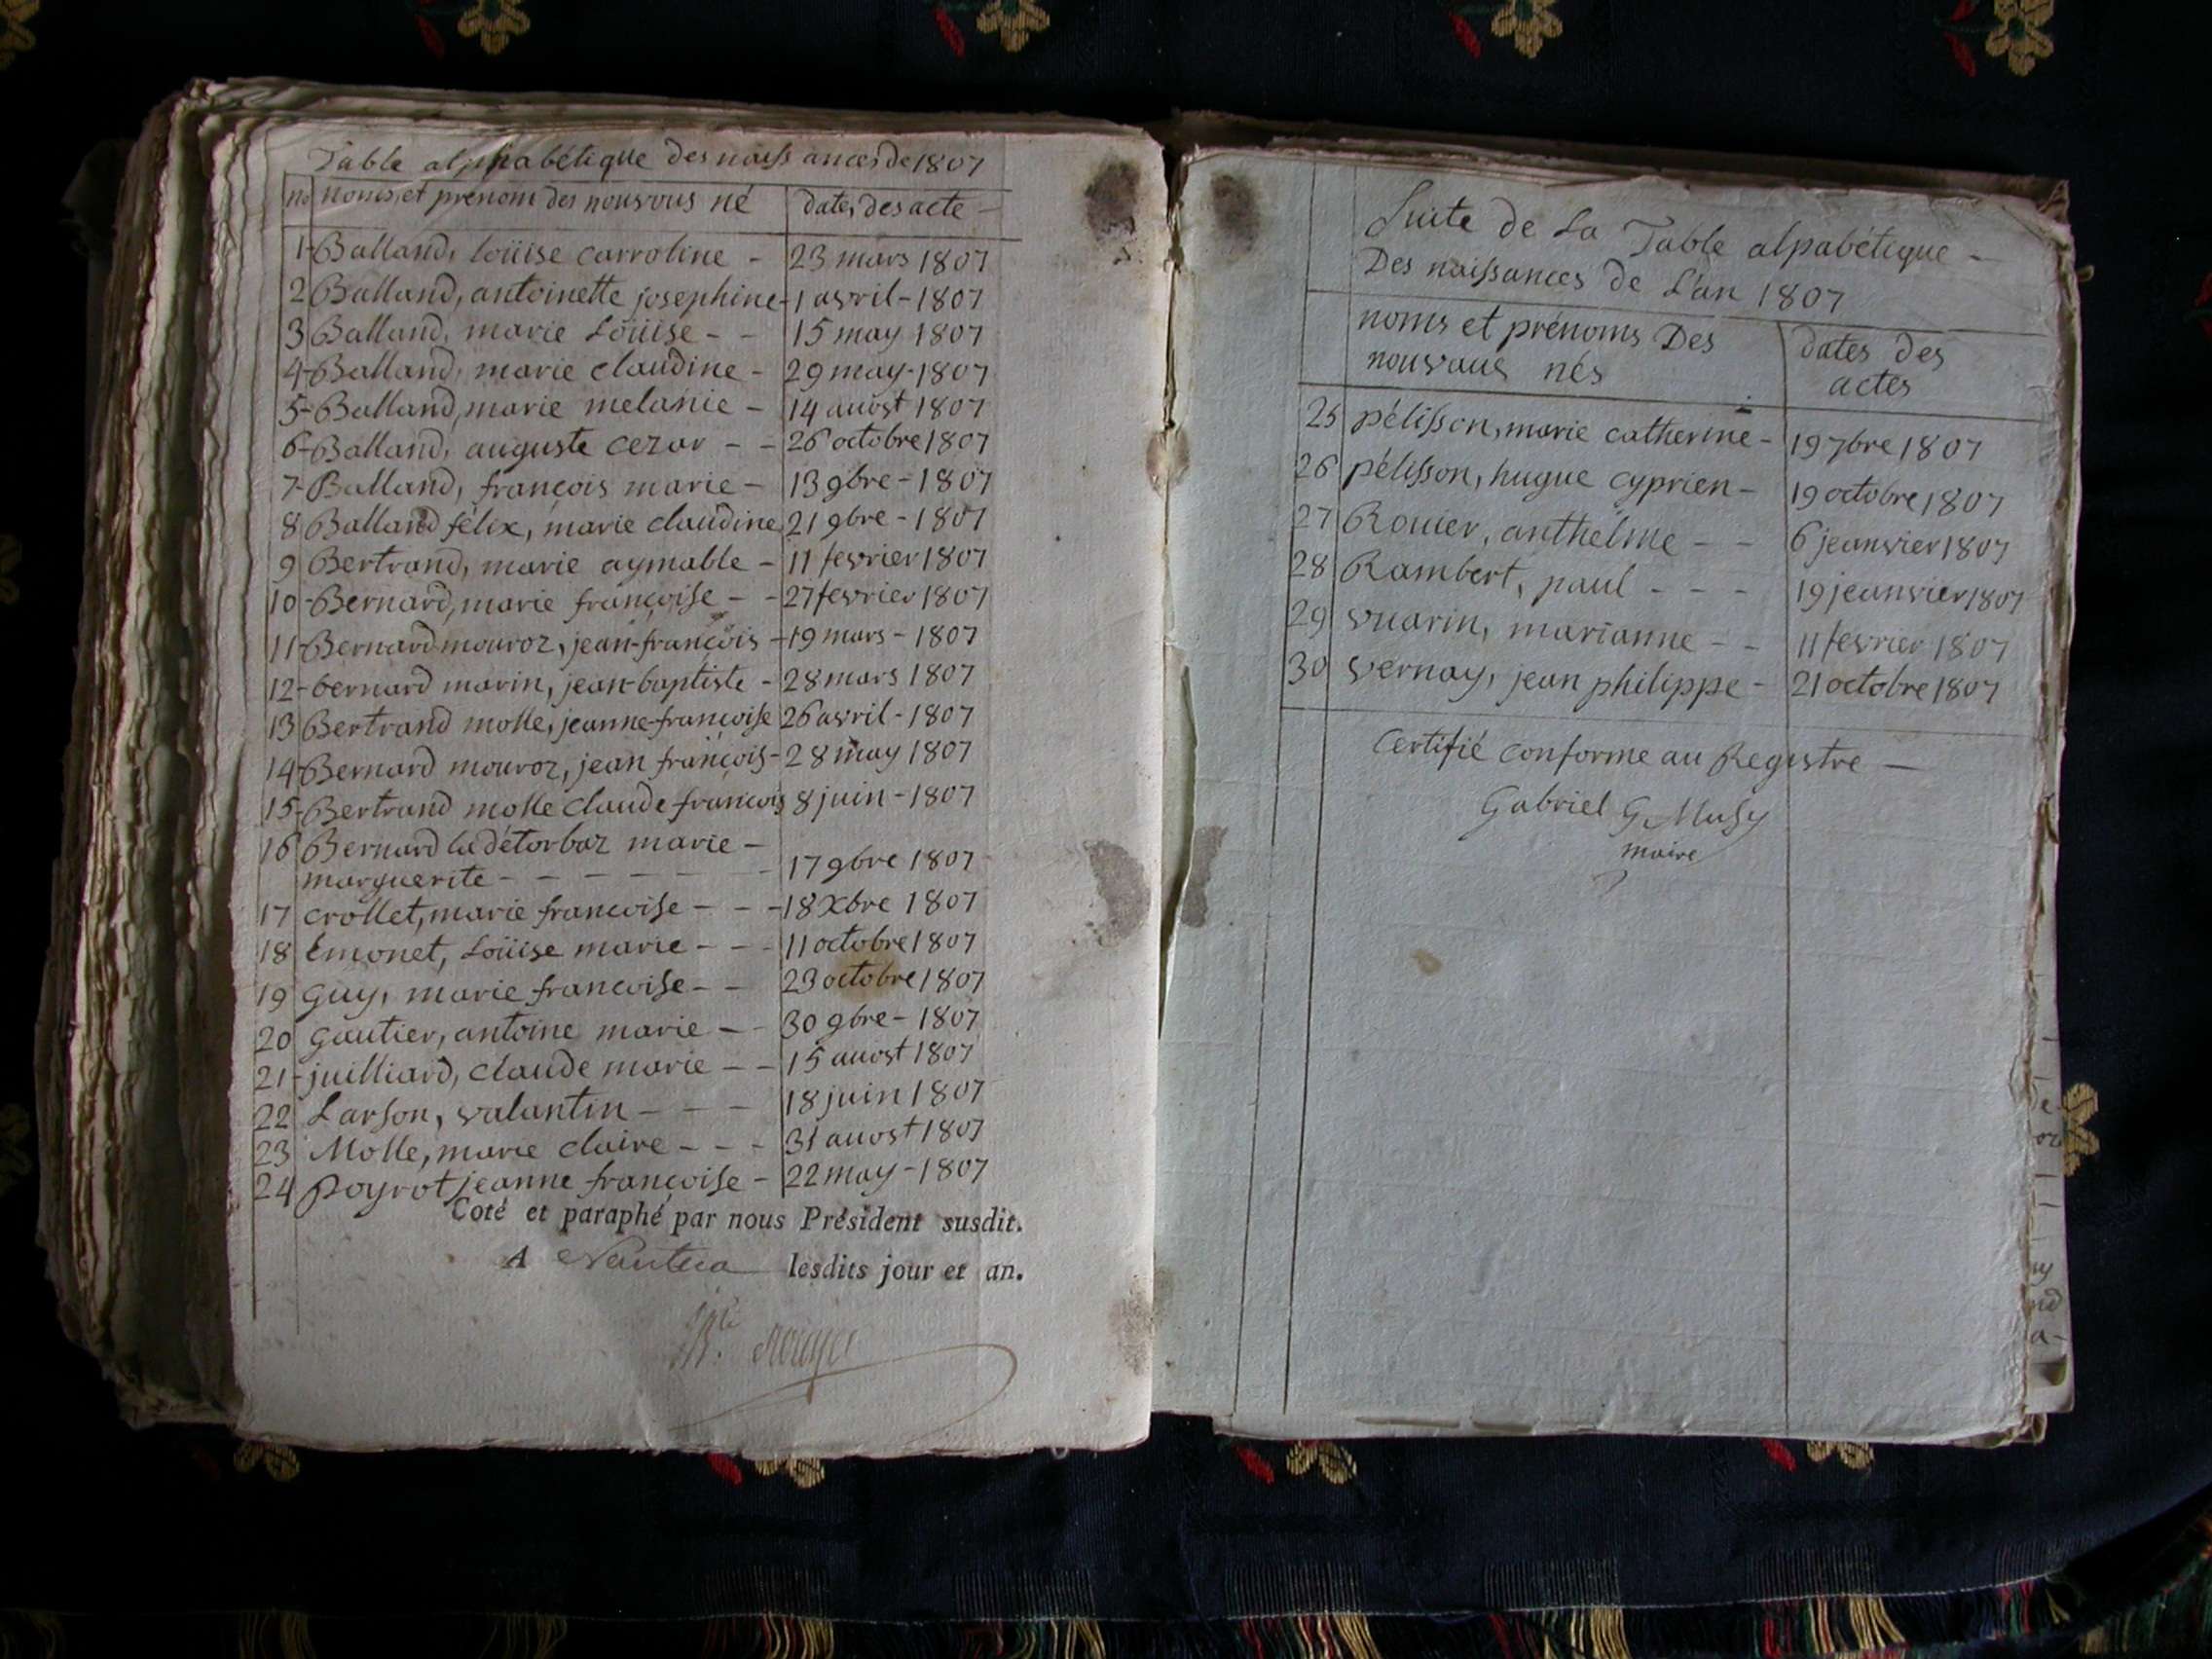 Table alphabétique des naissances de 1807
no noms et prénom des nouvous né dates des acte -
1 - Balland, loüise carroline - 23 mars 1807
2 Balland, antoinette josephine - 1 avril - 1807
3 Balland, marie Loüise - - 15 may 1807
4 - Balland, marie claudine - 29 may - 1807
5 - Balland, marie melanie - 14 auost 1807
6 - Balland, auguste cezar - - 26 octobre 1807
7 - Balland, françois marie - 13 9bre - 1807
8 Balland félix, marie claudine 21 9bre - 1807
9 Bertrand, marie aymable - 11 fevrier 1807
10 - Bernard, marie françoise - - 27 fevrier 1807
11 - Bernard mouroz, jean-françois - 19 mars - 1807
12 - bernard marin, jean-baptiste - 28 mars 1807
13 Bertrand molle, jeanne-françoise 26 avril - 1807
14 - Bernard mouroz, jean françois - 28 may 1807
15 - Bertrand molle claude françois 8 juin - 1807
16 Bernard la détorbaz marie -
marguerite - - - - - - - 17 9bre 1807
17 crollet, marie francoise - - - 18 Xbre 1807
18 Emonet, Loüise marie - - - 11 octobre 1807
19 Guy, marie francoise - - 23 octobre 1807
20 Gautier, antoine marie - - 30 9bre - 1807
21 - juilliard, claude marie - - 15 auost 1807
22 Larson, valantin - - - 18 juin 1807
23 Molle, marie claire - - - 31 auost 1807
24 poyrot jeanne françoise - 22 may - 1807
Coté et paraphé par nous Président susdit.
A Nantua lesdits jour et an.
Suite de La Table alpabétique -
Des naissances de L'an 1807
noms et prénoms Des dates des
nouvaus nés actes
25 pélisson, marie catherine - 19 7bre 1807
26 pélisson, hugue cyprien - 19 octobre 1807
27 Rouier, anthelme - - 6 jeanvier 1807
28 Rambert, paul - - - 19 jeanvier 1807
29 vuarin, marianne - - 11 fevrier 1807
30 vernay, jean philippe - 21 octobre 1807
Certifié conforme au Registre -
Gabriel G Musy
maire